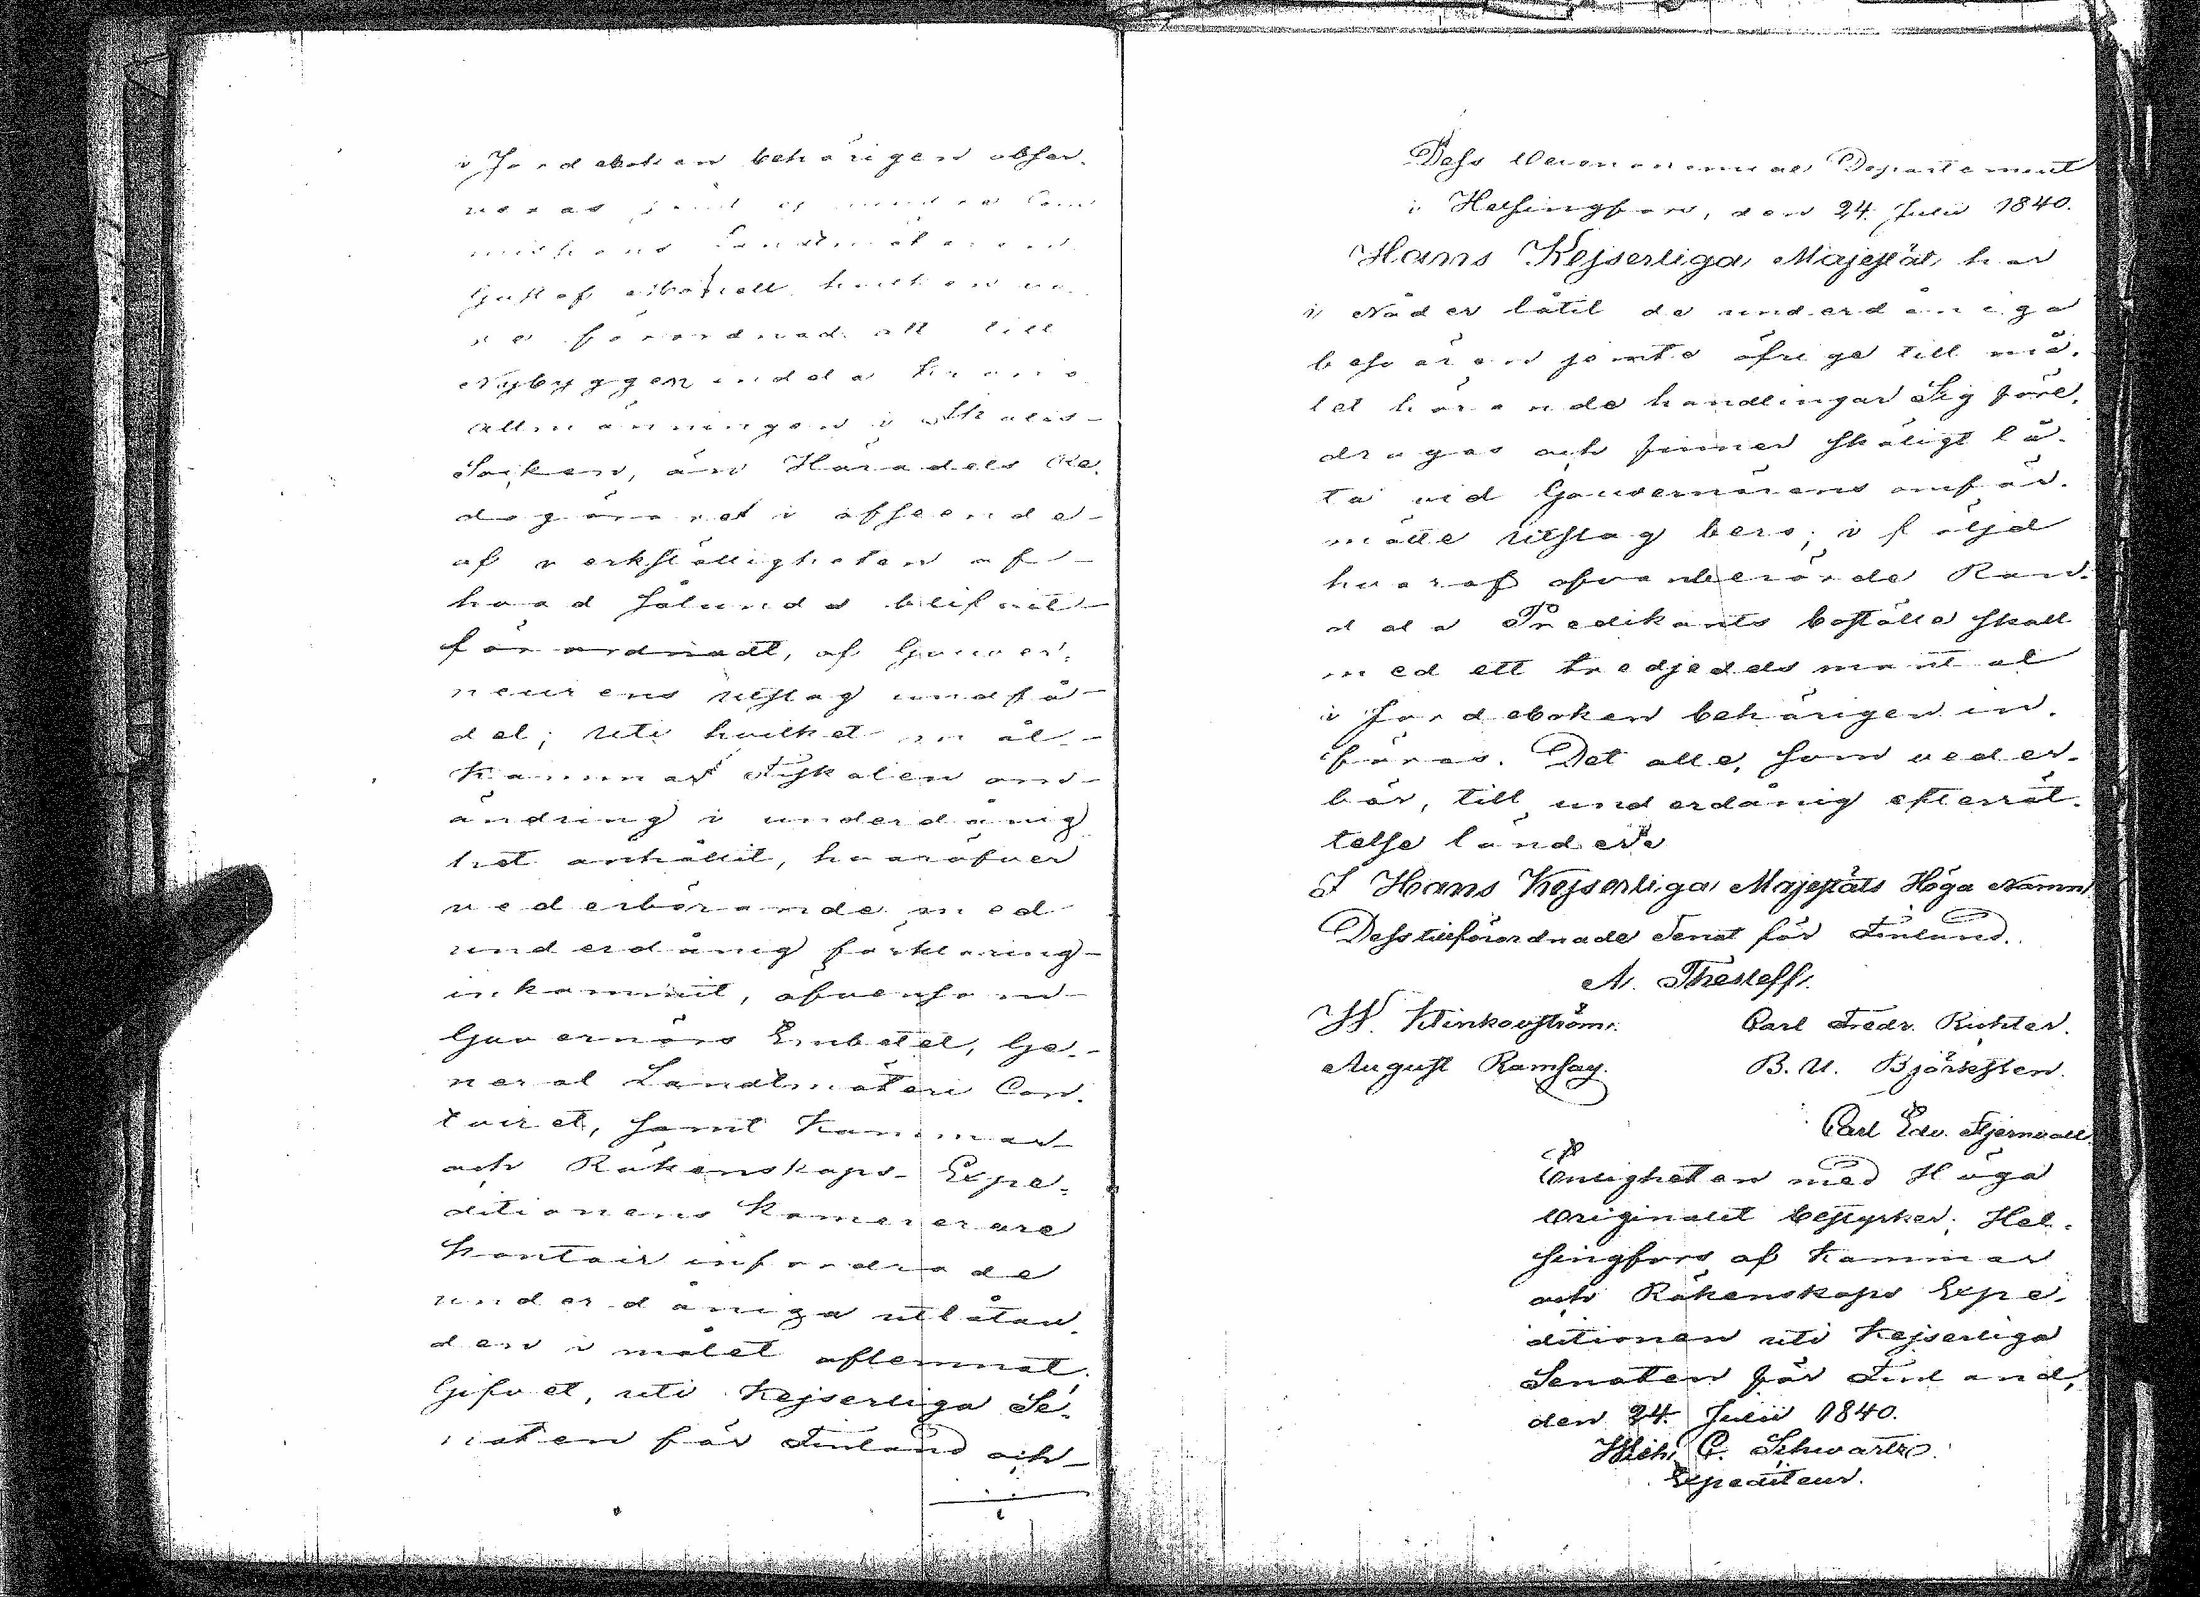 i Jordeboken behörigen obser-
veras samt ej mindre Com
missions Landtmätaren
Gustaf
re förordnad att till
Nybyggen indela Krono
Allmänningen i
Socken, än Häradets Re
dogörare i afseende
af verkställigheten af
hvad sålunda blifvit
förordnadt, af Gouver-
neurens utslag undfå
del; uti hvilket mål
Kammar Fiskalen om
ändring i underdånig
het anhållit, hvaröfver
vederbörande med
underdånig förklaring
inkommit, äfvensom
Guvernörs Embetet, Ge-
neral Landtmäteri Con-
toiret, samt Kammar
och Räkenskaps Expe-
ditionens Kamererare
Kontoir infordrade
underdåniga utlåtan-
den i målet aflemnat.
Gifvet, uti Kejserliga Se-
naten för Finland och
Dess Oeconomiae Departement
i Helsingfors, den 24 Julii 1840.
Hans Kejserliga Majestät har
i Nåder låtit de underdåniga
besvären jemte öfrige till må-
let hörande handlingar Sig före-
dragas och finner skäligt lå-
ta vid Gouvernörens omför-
mälte Utslag bero; i följd
hvaraf ofvanberörde Ran-
dala Predikants boställe skall
med ett tredjedels mantal
i Jordeboken behörigen in-
föras. Det alle, som veder-
bör, till underdånig efterrät-
telse lände.
I Hans Kejserliga Majestäts Höga Namn,
Dess tillförordnade Senat för Finland.
A. Thesleff.
W. Klinkovström. Carl Fredr. Richter.
August Ramsay. B. U. Björksten.
Carl Edv. Stjernvall
Enligheten med Höga
Originalet bestyrker; Hel-
singfors af Kammar
och Räkenskaps Expe-
ditionen uti Kejserliga
Senaten för Finland,
den 24. Julii 1840.
C. Schwartz.
Expediteur.